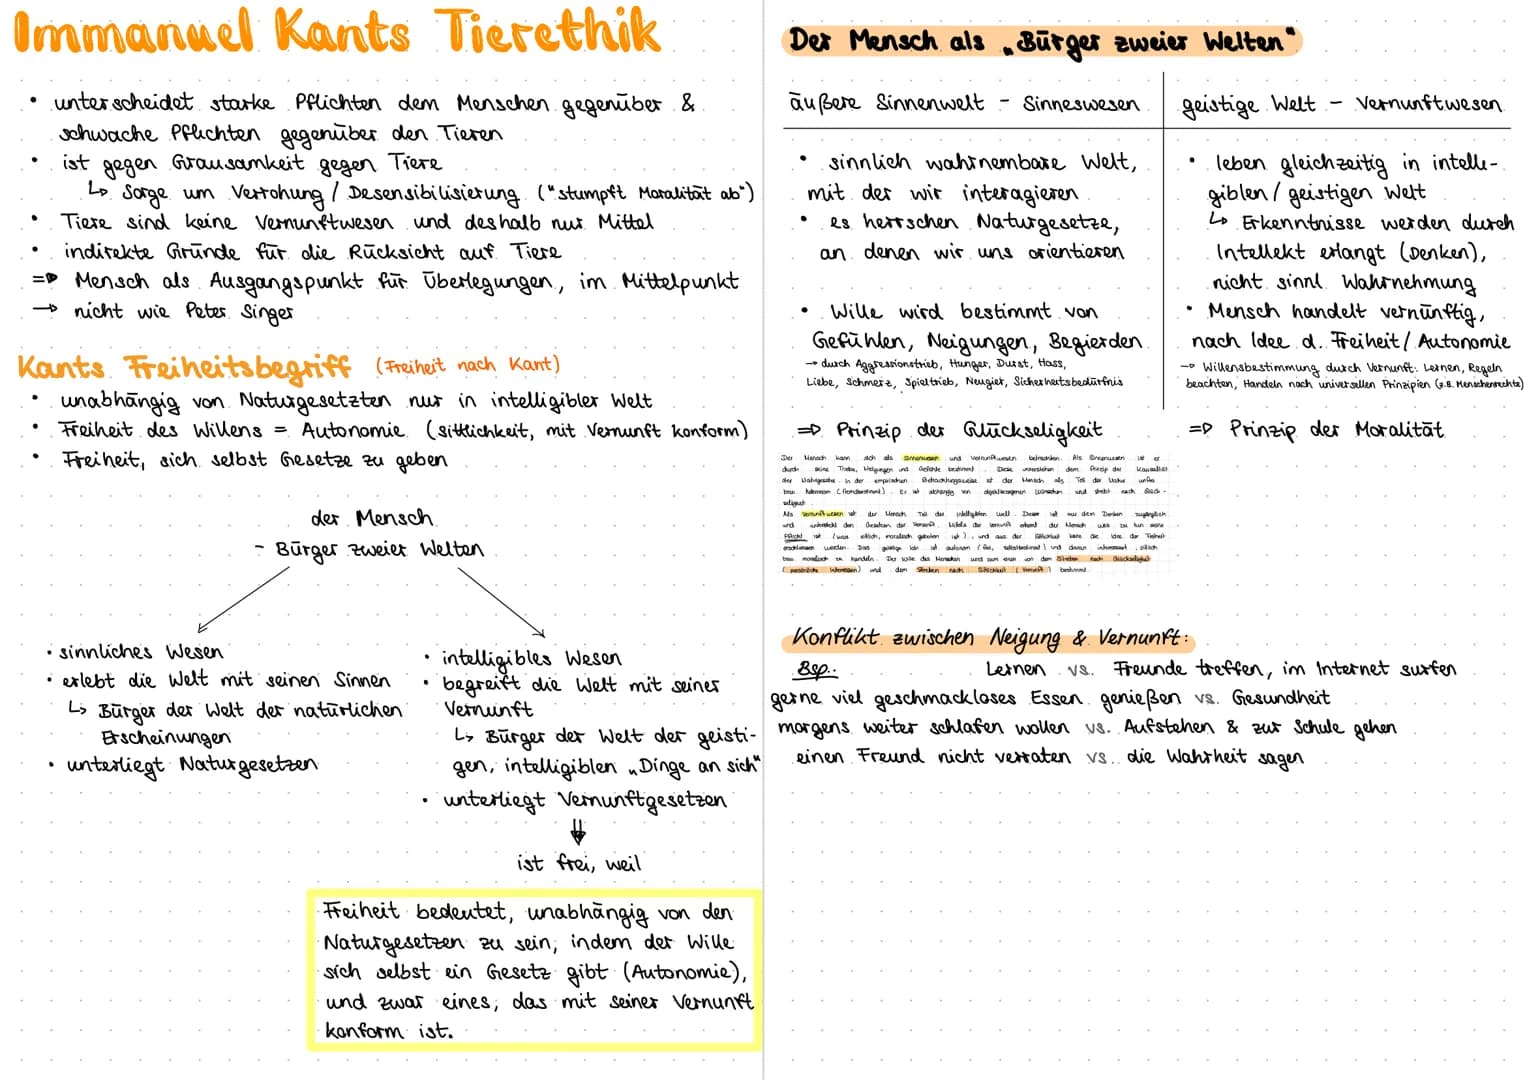 Immanuel Kants Tierethik
• unterscheidet starke Pflichten dem Menschen gegenüber &
schwache Pflichten gegenüber den Tieren
• ist gegen Grausamkeit gegen Tiere
↳ Sorge um Verrohung / Desensibilisierung ("stumpft Moralität ab")
• Tiere sind keine Vernunftwesen und deshalb nur Mittel
• indirekte Gründe für die Rücksicht auf Tiere
=> Mensch als Ausgangspunkt für Überlegungen, im Mittelpunkt
→ nicht wie Peter Singer
Kants Freiheitsbegriff (Freiheit nach Kant)
• unabhängig von Naturgesetzten nur in intelligibler Welt
• Freiheit des Willens = Autonomie (sittlichkeit, mit Vernunft konform)
• Freiheit, sich selbst Gesetze zu geben
der Mensch
- Bürger zweier Welten
• sinnliches Wesen
• erlebt die Welt mit seinen Sinnen
↳ Bürger der Welt der natürlichen
Erscheinungen
• unterliegt Naturgesetzen
• intelligibles Wesen
• begreift die Welt mit seiner
Vernunft
↳ Bürger der Welt der geisti-
gen, intelligiblen „Dinge an sich"
• unterliegt Vernunftgesetzen
⇓
ist frei, weil
Freiheit bedeutet, unabhängig von den
Naturgesetzen zu sein, indem der Wille
sich selbst ein Gesetz gibt (Autonomie),
und zwar eines, das mit seiner Vernunft
konform ist.
Der Mensch als „Bürger zweier Welten"
äußere Sinnenwelt - Sinneswesen
• sinnlich wahrnembare Welt,
mit der wir interagieren
• es herrschen Naturgesetze,
an denen wir uns orientieren
• Wille wird bestimmt von
Gefühlen, Neigungen, Begierden
→ durch Aggressionstrieb, Hunger, Durst, Hass,
Liebe, Schmerz, Spieltrieb, Neugier, Sicherheitsbedürfnis
=> Prinzip der Glückseligkeit
geistige Welt - Vernunftwesen
• leben gleichzeitig in intelle-
giblen / geistigen Welt
↳ Erkenntnisse werden durch
Intellekt erlangt (Denken),
nicht sinnl. Wahrnehmung
• Mensch handelt vernünftig,
nach Idee d. Freiheit / Autonomie
→ Willensbestimmung durch Vernunft: Lernen, Regeln
beachten, Handeln nach universellen Prinzipien (z.B. Menschenrechte)
=> Prinzip der Moralität
Der Mensch kann sich als Sinnenwesen und Vernunftwesen betrachten. Als Sinnenwesen ist er
durch seine Triebe, Neigungen und Gefühle bestimmt. Diese unterstehen dem Prinzip der Kausalität
Konflikt zwischen Neigung & Vernunft:
Bsp.: Lernen vs. Freunde treffen, im Internet surfen
gerne viel geschmackloses Essen genießen vs. Gesundheit
morgens weiter schlafen wollen vs. Aufstehen & zur Schule gehen
einen Freund nicht verraten vs. die Wahrheit sagen